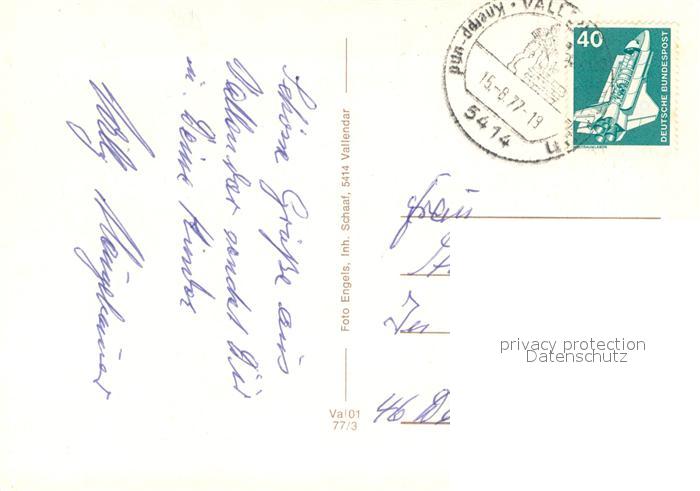 Schöne Grüße aus
Vallendar sendet Dir
u. Deine Kinder
Foto Engels, Inh. Schaaf, 5414 Vallendar
Va 01
77/3
Kneipp-und
15.-8.77-19
5414
40
DEUTSCHE BUNDESPOST
Frau
46 Do
privacy protection
Datenschutz